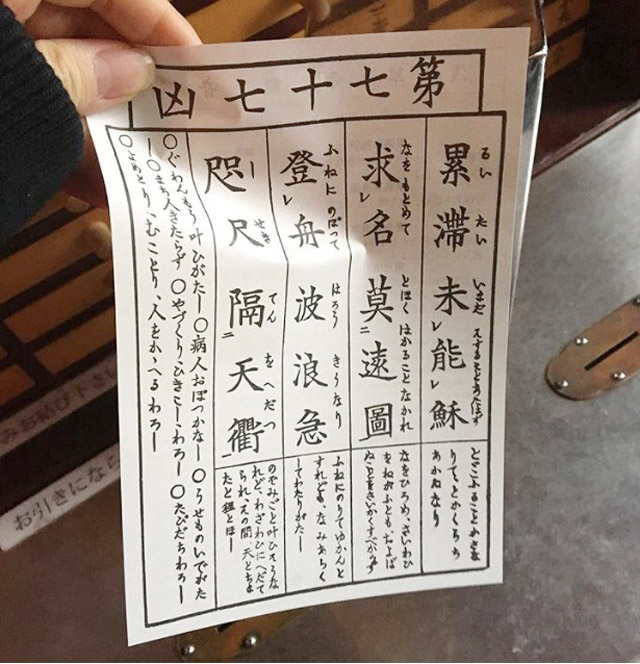 第七十七凶
るい たい いまだ
累滞未レ能レ穌
とどこふることかさな
りて、とかくらち
あかぬなり
なをもとめて とほくはかることなかれ
求レ名莫二遠圖一
なをひろめ、さいわひ
をねがふとも、およば
ぬことをさいかくすべからず
ふねに のぼつて はろう きうなり
登レ舟波浪急
ふねにのりてゆかんと
すれども、なみあらく
してわたりがたし
しせき てんをへだつ
咫尺隔二天衢一
のぞみごと叶ひそうな
れど、わざわひにへだて
られ、其の間天と
○ぐわんもう叶ひがたし ○病人おぼつかなし ○うせものいでがた
し ○まち人きたらず ○やづくりひきこし、わろし ○たびだちわろし
○よめとり、むことり、人をかゝへるわろし
みお結び下さい
お引きになら